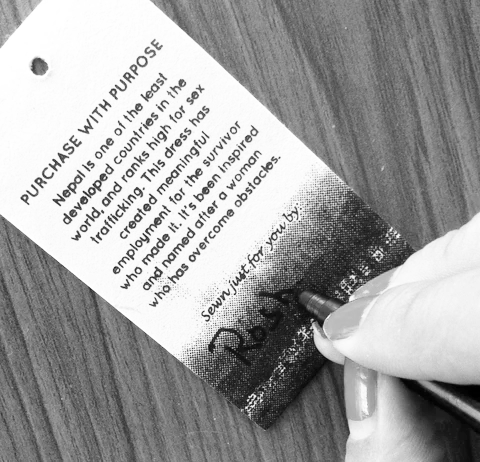 PURCHASE WITH PURPOSE
Nepal is one of the least
developed countries in the
world, and ranks high for sex
trafficking. This dress has
created meaningful
employment for the survivor
who made it. It's been inspired
and named after a woman
who has overcome obstacles.
Sewn just for you by:
Rosh